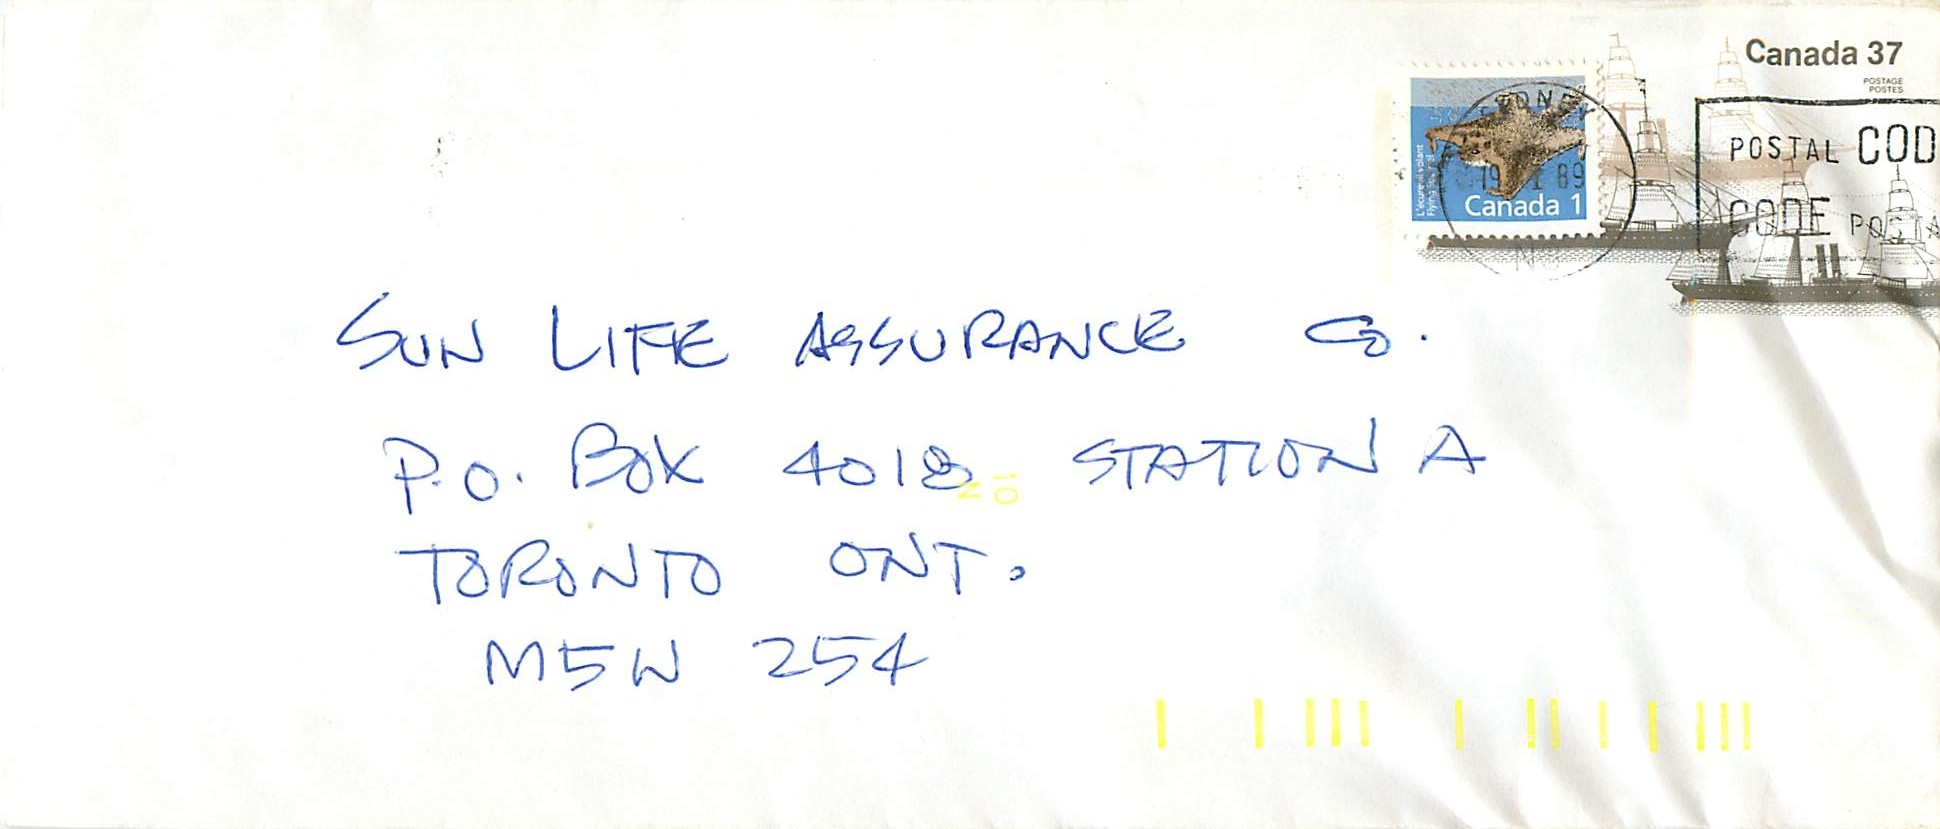 Canada 37
POSTAGE
POSTES
L'écureuil volant
Flying
Canada 1
89
NS
POSTAL COD
CODE POSTA
SUN LIFE ASSURANCE CO.
P.O. BOX 4018 STATION A
10
N
TORONTO ONT.
M5W 254